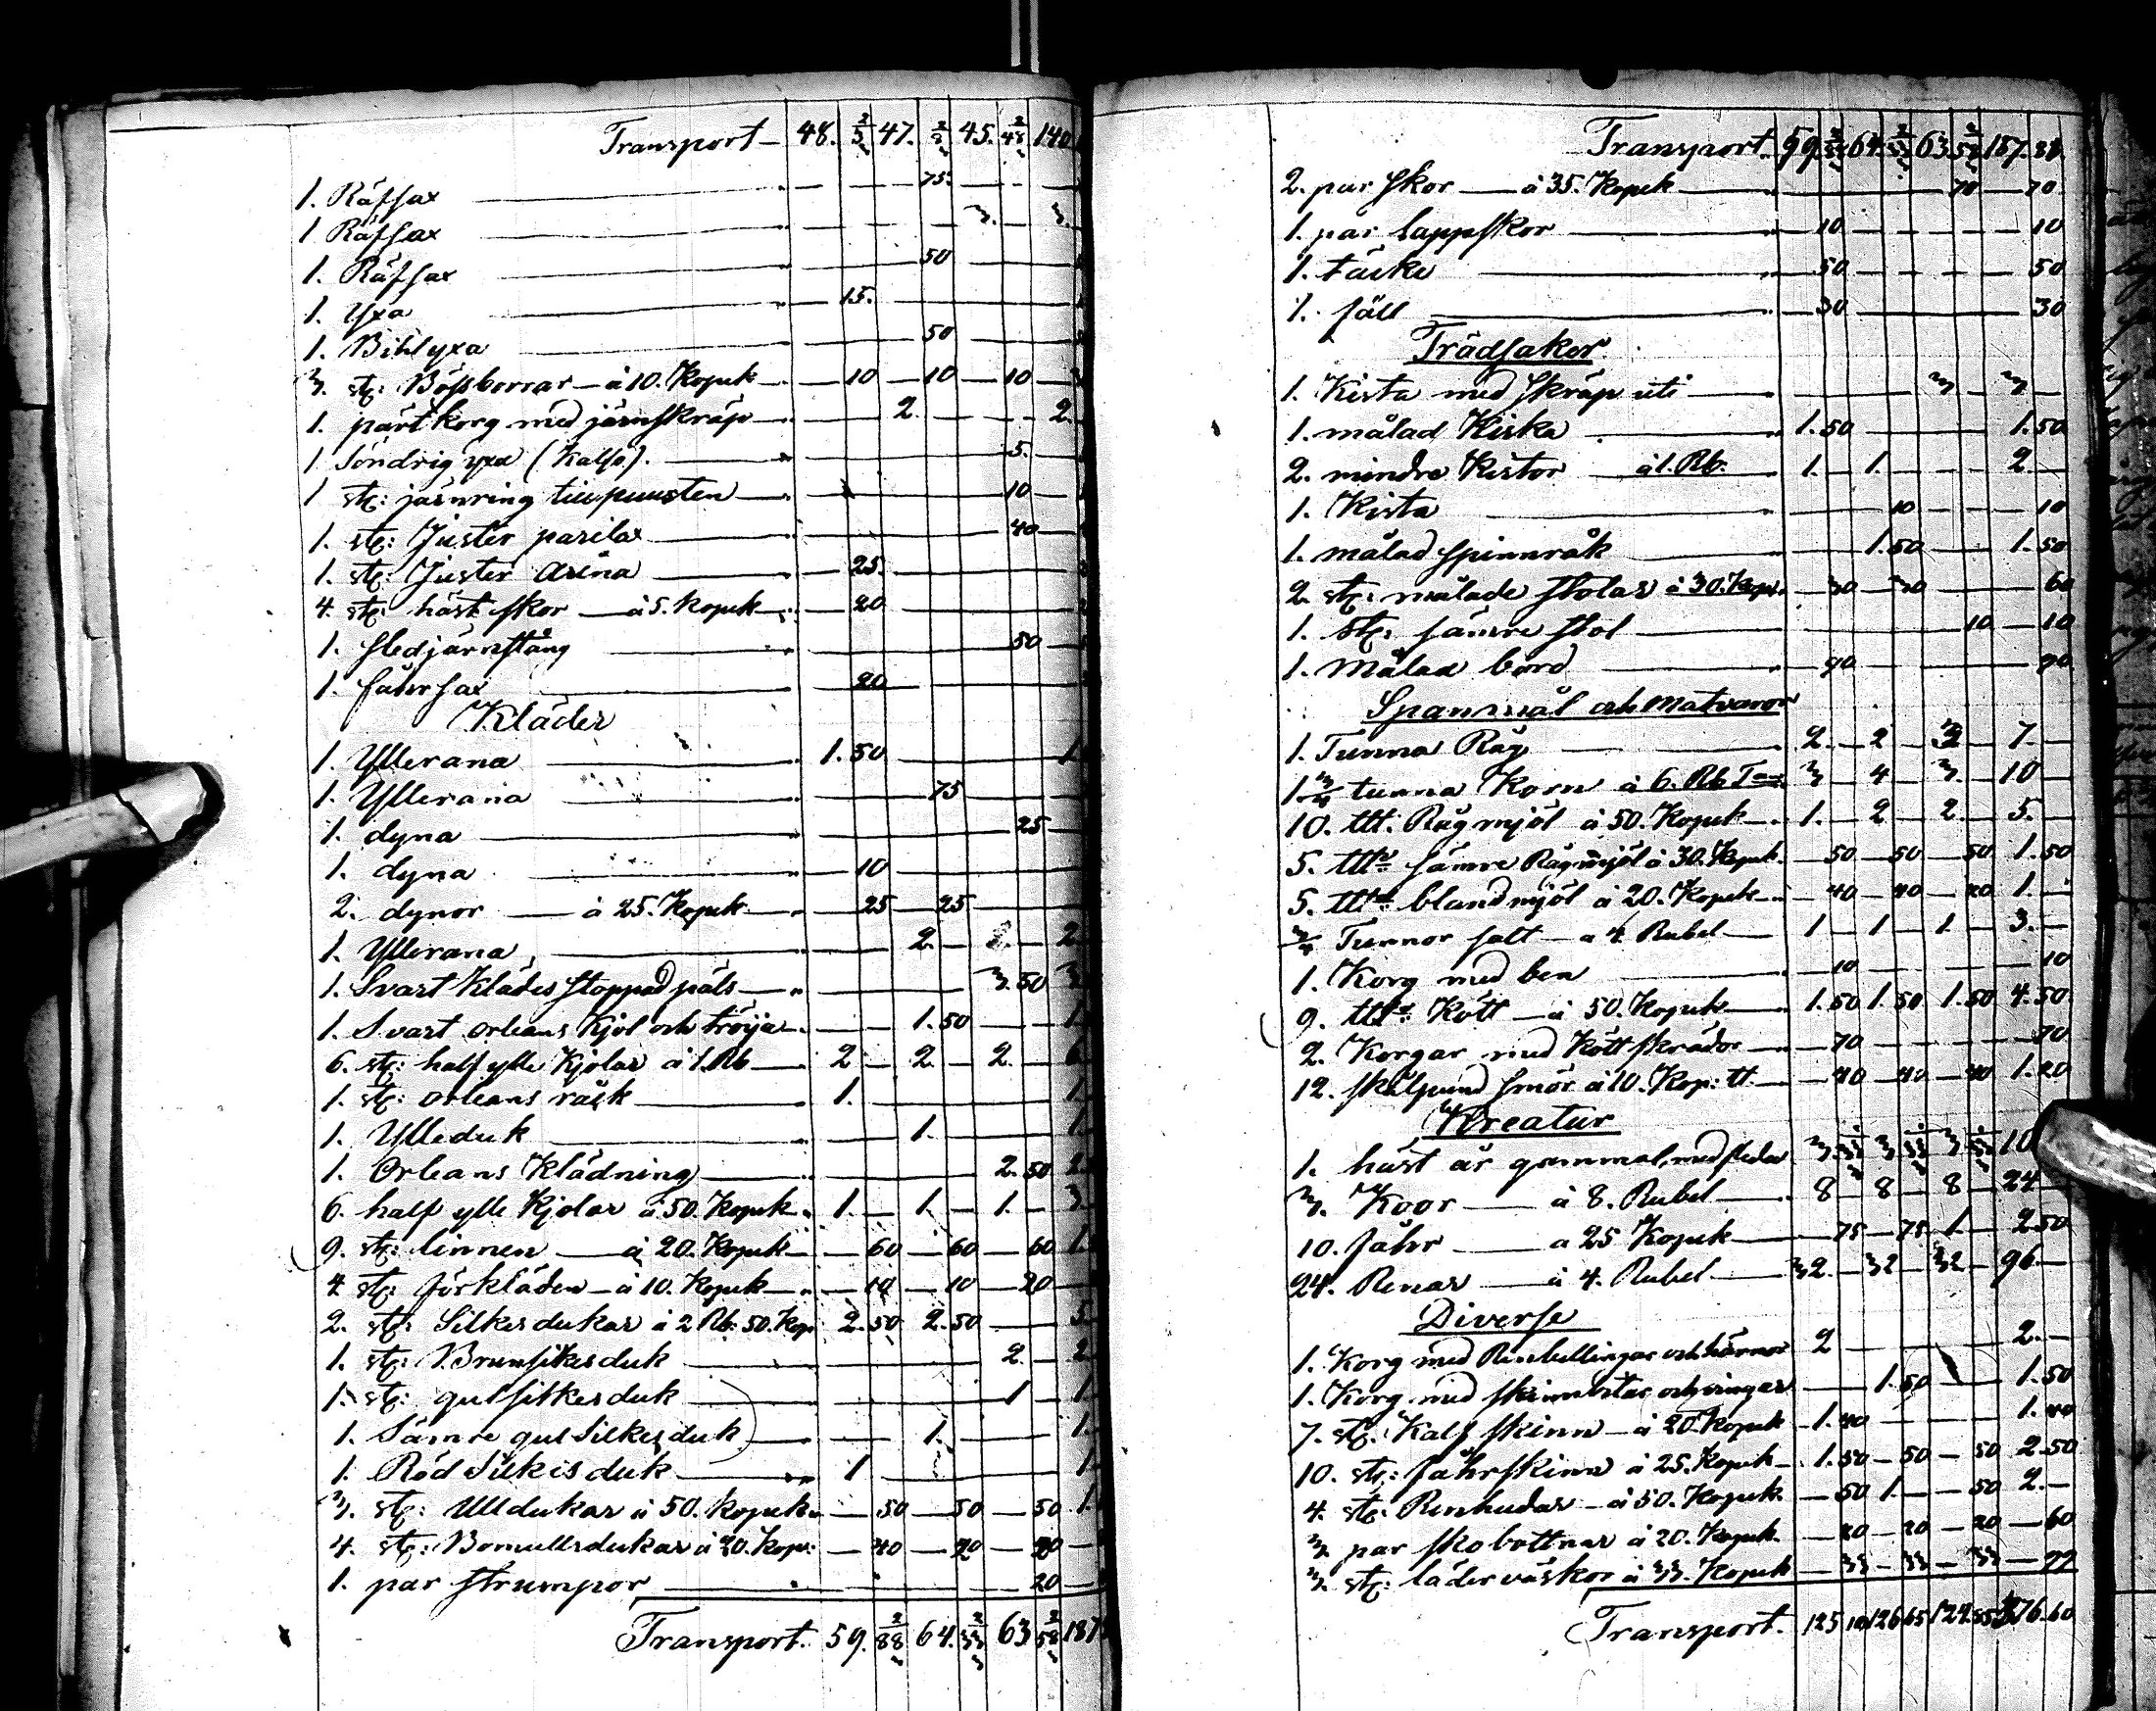 Transport — 48. 2/3 47. 2/3 45. 2/48 140
1. Räfsax — 75.
1 Räfsax — 3. — 3.
1. Räfsax — 50
1. Yxa — 15.
1. Bihlyxa — 50
3. st: Bössborrar — à 10. Kopek — 10 — 10 — 10 —
1. pärtkorg med järnskräp — 2. — 2.
1 Söndrig yxa (Kalso). — 5.
1 st: järnring till puusten — 10 —
1. st: Juster parilax — 40 —
1. st: Juster arina — 25.
4. st: hästskor — à 5. kopek — 20
1. Sledjärnstång — 50 —
1. fåhrsax — 20
Kläder
1. Yllerana — 1.50 — 1
1. Yllerana — 75
1. dyna — 25 —
1. dyna — 10
2. dynor — à 25. Kopek — 25 — 25
1. Yllerana — 2. — 2
1. Svart Klädes stoppad päls — 3.50 3
1. Svart orleans Kjol och tröja — 1.50 — 1
6. st: half ylle Kjolar à 1. Rb — 2 — 2. — 2. — 6
1. st: Orleans räck — 1. — 1.
1. Ylleduk — 1. — 1.
1. Orleans Klädning — 2.50 2
6. half ylle Kjolar à 50. Kopek 1. — 1. — 1. — 3.
9. st: linnen — à 20. Kopek — 60 — 60 — 60 1.
4 st: förkläden — à 10. Kopek — 10 — 10 — 20 —
2. st: Silkesdukar à 2 Rb: 50. Kop. 2.50 2.50 — 5
1. st: Brunsilkesduk — 2. — 2
1. st: gulsilkesduk — 1 — 1
1. Sämre gul Silkesduk — 1. — 1.
1. Röd Silkesduk — 1 — 1
3. st: Ulldukar à 50. kopek — 50 — 50 — 50 1.
4. st: Bomullsdukar à 20. Kop: — 40 — 20 — 20 —
1. par strumpor — 20 —
Transport. 59. 2/88 64. 2/33 63 2/58 187
Transport. 59. 2/88 64. 2/33 63 2/58 187. 88
2. par skor — à 35. Kopek — 70 — 70
1. par lappskor — 10 — 10
1. täcke — 50 — 50
1. fäll — 30 — 30
Trädsaker
1. Kista med skräp uti — 3 — 3
1. målad Kista — 1.50 — 1.50
2. mindre Kistor — à 1. Rb. — 1. — 1. — 2. —
1. Kista — 10 — 10
1. målad Spinnråk — 1.50 — 1.50
2. st: målade stolar à 30. Kop. — 30 — 30 — 60
1. st: sämre stol — 10 — 10
1. Målad bord — 90 — 90
Spanmål och Matvaror
1. Tunna Råg — 2. — 2 — 3 — 7. —
1 3/4 tunna Korn à 6. Rb Tna 3 — 4 — 3. — 10 —
10. ttt. Rågmjöl à 50. Kopek — 1. — 2 — 2. — 5. —
5. ttt sämre Rågmjöl à 30. Kopek — 50 — 50 — 50 1.50
5. ttt blandmjöl à 20. Kopek — 40 — 40 — 20 1. —
3/4 Tunnor salt — a 4 Rubel — 1 — 1 — 1 — 3. —
1. Korg med ben — 10 — 10
9. ttt Kött — à 50. Kopek — 1.50 1.50 1.50 4.50
2. Korgar med Kött skrädor — 70 — 70
12. skålpund smör à 10. Kop: tt. — 40 — 40 — 40 1.20
Kreatur
1. häst år gammal, med sledar 3 3 3 10
3. Koor — à 8. Rubel — 8 — 8 — 8 — 24 —
10. fåhr — a 25 Kopek — 75 — 75 1. — 2.50
24. Renar — à 4. Rubel — 32 — 32 — 32 — 96 —
Diverse
1. Korg med Renbellingar och — 2 — 2. —
1. Korg med — 1.50 — 1.50
7. st: Kalfskinn — à 20. Kopek — 1.40 — 1.40
10. st: fåhrskinn à 25. Kopek — 1.50 — 50 — 50 2.50
4. st: Renhudar — à 50. Kopek — 50 1. — 50 2. —
3. par skobottnar à 20. Kopek — 20 — 20 — 20 — 60
3. st: läderväskor à 33. Kopek — 33 — 33 — 33 — 99
Transport. 125 10 126 65 124. 85 376. 60